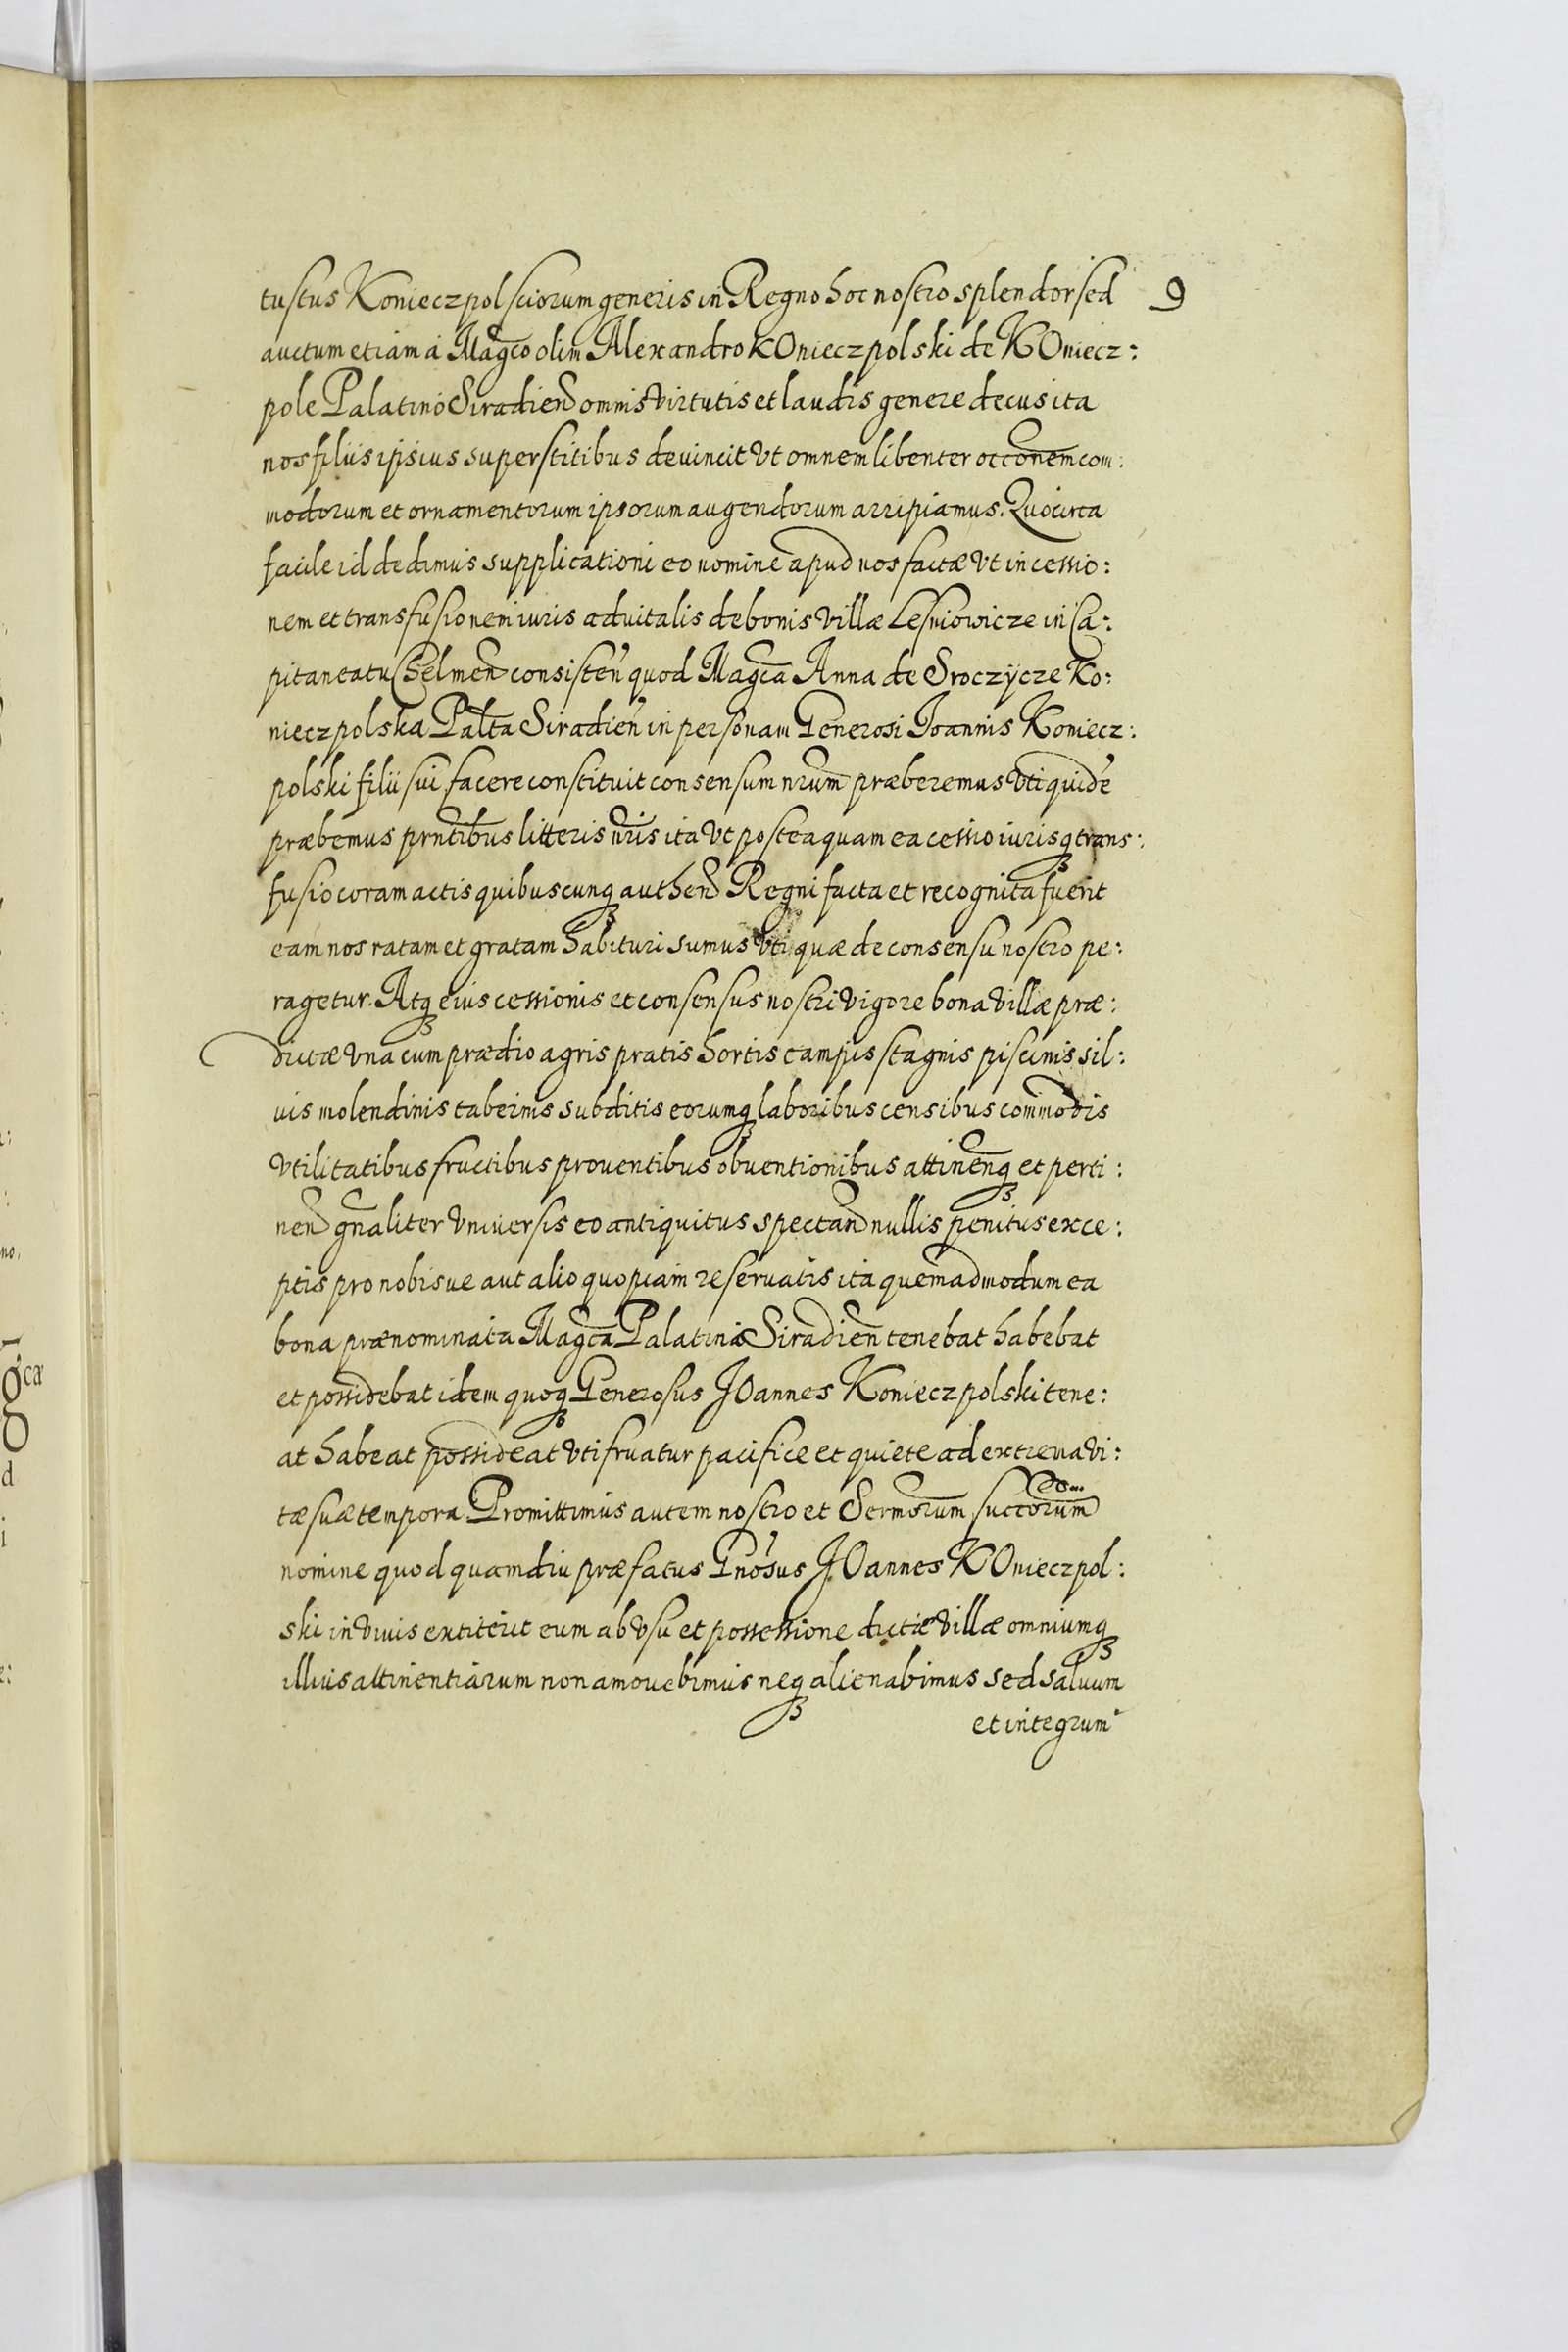 tustus Konieczpolsciorum generis in Regno hoc nostro splendor sed
9
auctum etiam à Magco olim Alexandro KOnieczpolski de KOniecz:
pole Palatino Siradien omnis virtutis et laudis genere decus ita
nos filiis ipsius superstitibus deuincit vt omnem libenter occonem com:
modorum et ornamentorum ipsorum augendorum arripiamus. Quocirca
facile id dedimus supplicationi eo nomine apud nos factæ vt in cessio:
nem et transfusionem iuris aduitalis de bonis villæ Lesniowicze in Ca:
pitaneatu Chelmen consisten quod Magca Anna de Sroczycze Ko:
nieczpolska Palta Siradien in personam Generosi Ioannis Koniecz:
polski filii sui facere constituit consensum nrum præberemus vti quidē
præbemus prntibus litteris nris ita vt posteaquam ea cessio iurisq trans:
fusio coram actis quibuscunq authen Regni facta et recognita fuerit
eam nos ratam et gratam habituri sumus vti quæ de consensu nostro pe:
ragetur. Atq eius cessionis et consensus nostri vigore bona villæ præ:
dictæ vna cum prædio agris pratis hortis campis stagnis piscinis sil:
uis molendinis tabernis subditis eorumq laboribus censibus commodis
vtilitatibus fructibus prouentibus obuentionibus attinenq et perti:
nen gnaliter vniuersis eo antiquitus spectan nullis penitus exce:
ptis pro nobisue aut alio quopiam reseruatis ita quemadmodum ea
bona prænominata Magca Palatina Siradien tenebat habebat
et possidebat idem quoq Generosus JOannes Konieczpolski tene:
at habeat possideat vtifruatur pacifice et quiete ad extrema vi:
tæ suæ tempora. Promittimus autem nostro et Sermorum succorum
nomine quod quamdiu præfatus Gnosus JOannes KOnieczpol:
ski in viuis extiterit eum ab vsu et possessione dictæ villæ omniumq
illius attinentiarum non amouebimus neq alienabimus sed saluum
et integrum